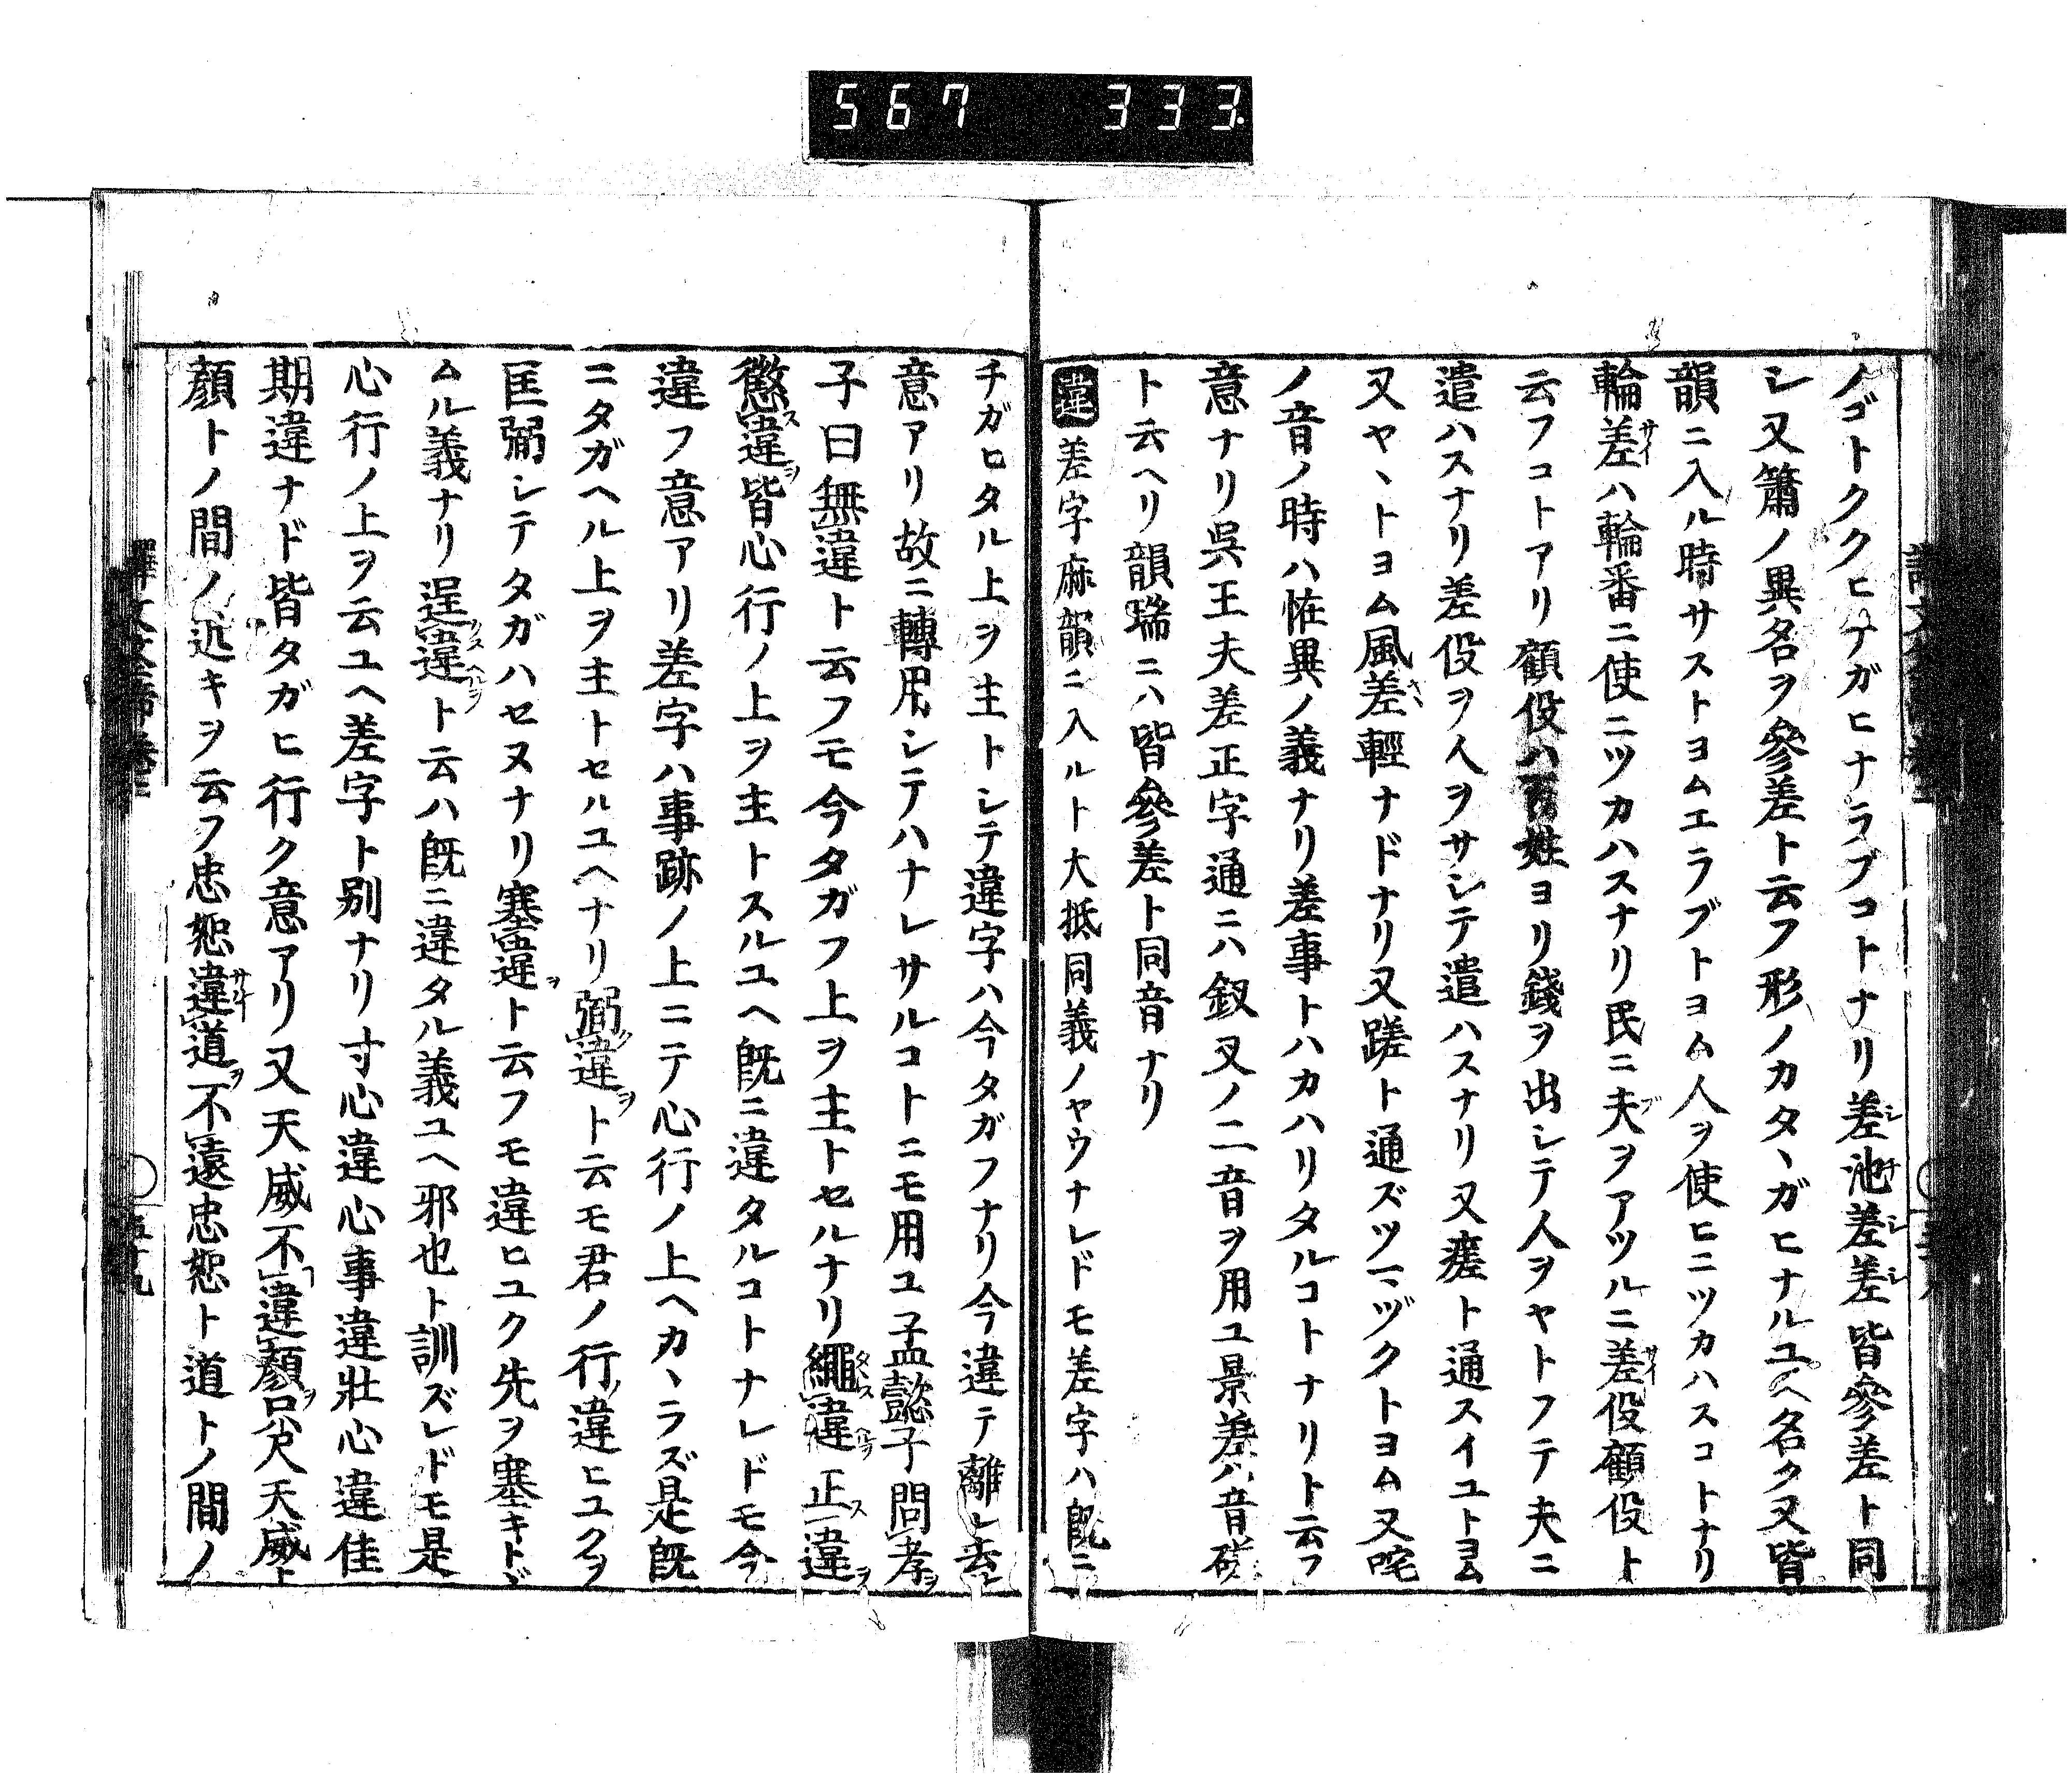 567 333
ノゴトククヒチガヒナラブコトナリ差池差差皆參差ト同
シ又簫ノ異名ヲ參差ト云フ形ノカタヽガヒナルユヘ名ク又皆
韻ニ入ル時サストヨムエラブトヨム人ヲ使ヒニツカハスコトナリ
輪差ハ輪番ニ使ニツカハスナリ民ニ夫ヲアツルニ差役顧役ト
云フコトアリ顧役ハ百姓ヨリ錢ヲ出シテ人ヲヤトフテ夫ニ
遣ハスナリ差役ヲ人ヲサシテ遣ハスナリ又瘥ト通スイユトヨム
又ヤヽトヨム風差輕ナドナリ又蹉ト通ズツマヅクトヨム又咤
ノ音ノ時ハ恠異ノ義ナリ差事トハカハリタルコトナリト云フ
意ナリ吳王夫差正字通ニハ釵叉ノ二音ヲ用ユ景差ハ音磋
ト云ヘリ韻瑞ニハ皆參差ト同音ナリ
違 差字麻韻ニ入ルト大抵同義ノヤウナレドモ差字ハ旣ニ
チガヒタル上ヲ主トシテ違字ハ今タガフナリ今違テ離レ去
意アリ故ニ轉用シテハナレサルコトニモ用ユ孟懿子問孝ヲ
子曰無違ト云フモ今タガフ上ヲ主トセルナリ繩違正違
懲違皆心行ノ上ヲ主トスルユヘ旣ニ違タルコトナレドモ今
違フ意アリ差字ハ事跡ノ上ニテ心行ノ上ヘカヽラズ是旣
ニタガヘル上ヲ主トセルユヘナリ弼違ト云モ君ノ行違ヒユクヲ
匡弼シテタガハセヌナリ塞違ト云フモ違ヒユク先ヲ塞キトヾ
ムル義ナリ逞違ト云ハ旣ニ違タル義ユヘ邪也ト訓ズレドモ是
心行ノ上ヲ云ユヘ差字ト别ナリ寸心違心事違壯心違佳
期違ナド皆タガヒ行ク意アリ又天威不違顏咫尺天威ト
顏トノ間ノ近キヲ云フ忠恕違道不遠忠恕ト道トノ間ノ